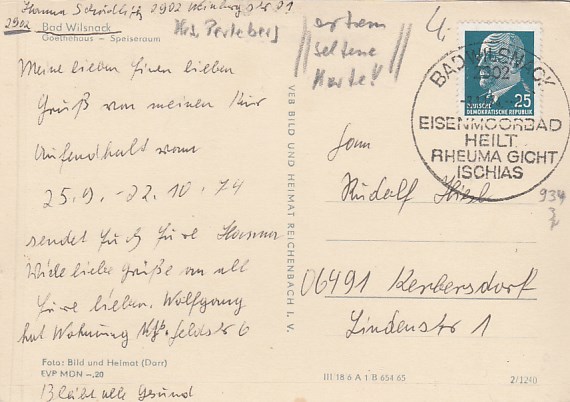 Hanna 2902 Weinbergstr 21
2902 Bad Wilsnack
Goethehaus – Speiseraum
Krs. Perleberg
extrem
seltene
Karte!!
Meine lieben lieben
Gruß von meinen Kur
Aufendhalt vom
25.9. - 22.10.74
sendet Euch Eure Hanna
Viele liebe Grüße an all
Eure lieben. Wolfgang
hat Wohnung feldstr 6
Foto: Bild und Heimat (Darr)
EVP MDN –.20
Bleibt alle Gesund
VEB BILD UND HEIMAT REICHENBACH I. V.
BAD WILSNACK
2902
25
DEUTSCHE
DEMOKRATISCHE REPUBLIK
EISENMOORBAD
HEILT
RHEUMA GICHT
ISCHIAS
Fam
Rudolf
934
06491 Kerbersdorf
Lindenstr 1
III 18 6 A 1 B 654 65
2/1240